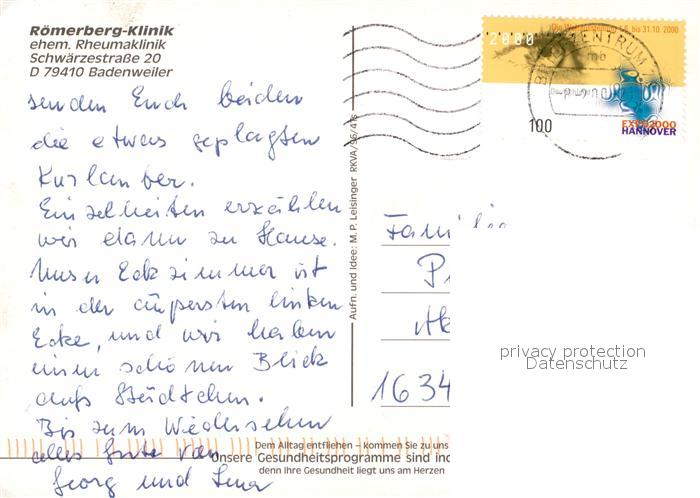 Römerberg-Klinik
ehem. Rheumaklinik
Schwärzestraße 20
D 79410 Badenweiler
senden Euch beiden
die etwas geplagten
Kurlauber.
Einzelheiten erzählen
wir dann zu Hause.
Unser Eckzimmer ist
in der äußersten linken
Ecke, und wir haben
einen schönen Blick
aufs Städtchen.
Bis zum Wiedersehen
alles Gute von
Georg und Lena
Aufn. und Idee: M. P. Leisinger RKVA/96/47s
2000
Die Weltausstellung 1.6. bis 31.10. 2000
BRIEFZENTRUM
100
EXPO2000
HANNOVER
Familie
1634
privacy protection
Datenschutz
Dem Alltag entfliehen – kommen Sie zu uns
Unsere Gesundheitsprogramme sind ind
denn Ihre Gesundheit liegt uns am Herzen